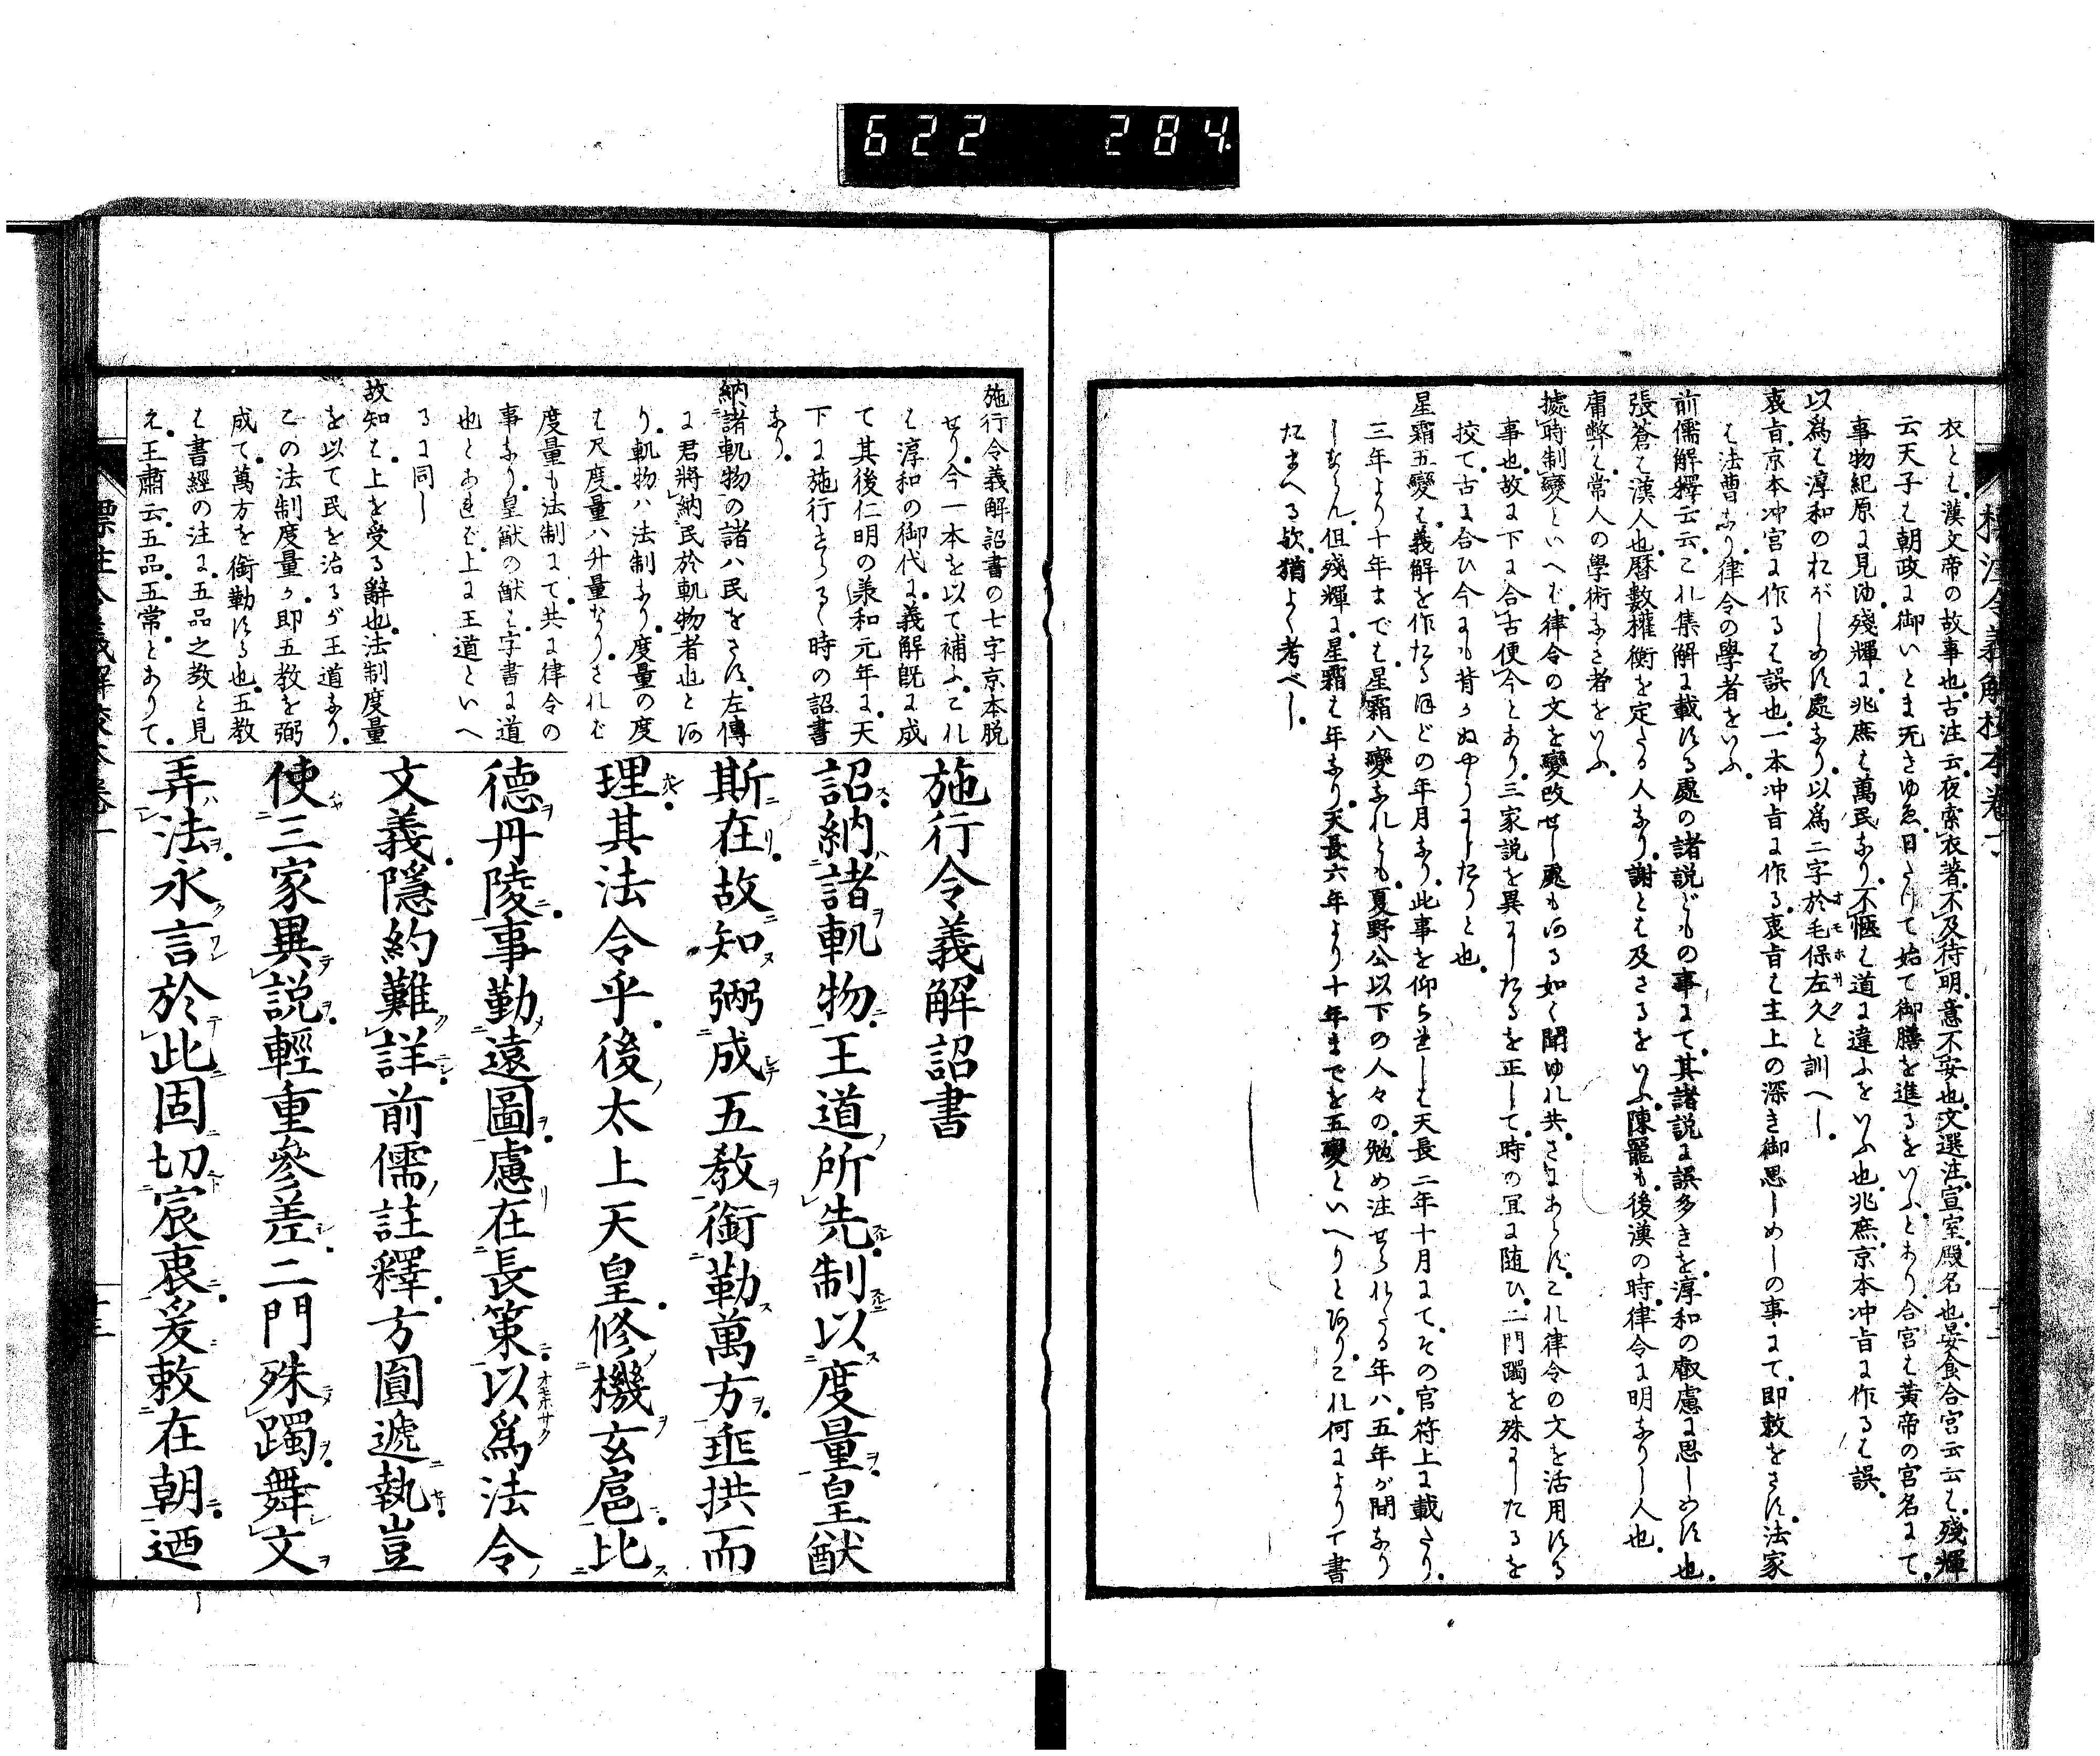 622 284
衣とは漢文帝の故事也古注云夜索衣著不及待明意不安也文選注宣室殿名也晏食合宮云云は殘輝
云天子は朝政に御いとま无きゆゑ日たけて始て御膳を進るをいふとあり合宮は黄帝の宮名にて
事物紀原に見ゆ殘輝に兆庶は萬民なり不愜は道に違ふをいふ也兆庶京本冲旨に作るは誤
以爲は淳和のおぼしめす處なり以爲二字於毛保左久と訓へし
衷旨京本冲宮に作るは誤也一本冲旨に作る衷旨は主上の深き御思しめしの事にて即敕をさす法家
は法曹なり律令の學者をいふ
前儒解釋云云これ集解に載する處の諸説どもの事にて其諸説に誤多きを淳和の叡慮に思しめす也
張蒼は漢人也暦數權衡を定たる人なり謝とは及さるをいふ陳寵も後漢の時律令に明なりし人也
庸弊は常人の學術なき者をいふ
據時制變といへば律令の文を變改せし處もある如く聞ゆれ共さにあらずこれ律令の文を活用する
事也故に下に合古便今とあり三家説を異にしたるを正して時の宜に随ひ二門躅を殊にしたるを
挍て古に合ひ今にも背かぬやうにしたりと也
星霜五變は義解を作たるほどの年月なり此事を仰られしは天長二年十月にてその官符上に載たり
三年より十年までは星霜八變なれとも夏野公以下の人々の勉め注せられたる年ハ五年が間なり
しならん但殘輝に星霜は年なり天長六年より十年までを五變といへりとあり これ何によりて書
たまへる歟猶よく考べし
施行令義解詔書の七字京本脱
せり今一本を以て補ふこれ
は淳和の御代に義解既に成
て其後仁明の承和元年に天
下に施行せらるゝ時の詔書
なり
納諸軌物の諸ハ民をさす左傳
に君將納民於軌物者也とあ
り軌物ハ法制なり度量の度
は尺度量ハ升量なりされば
度量も法制にて共に律令の
事なり皇猷の猷は字書に道
也とあれば上に王道といへ
るに同し
故知は上を受る辭也法制度量
を以て民を治るが王道なり
この法制度量が即五教を弼
成て萬方を銜勒する也五教
は書經の注に五品之教と見
え王肅云五品五常とありて
施行令義解詔書
詔納諸軌物王道所先制以度量皇猷
斯在故知弼成五教銜勒萬方垂拱而
理其法令乎後太上天皇修機玄扈比
德丹陵事勤遠圖慮在長策以爲法令
文義隱約難詳前儒註釋方圓遞執豈
使三家異説輕重參差二門殊躅舞文
弄法永言於此固切宸衷爰敕在朝迺